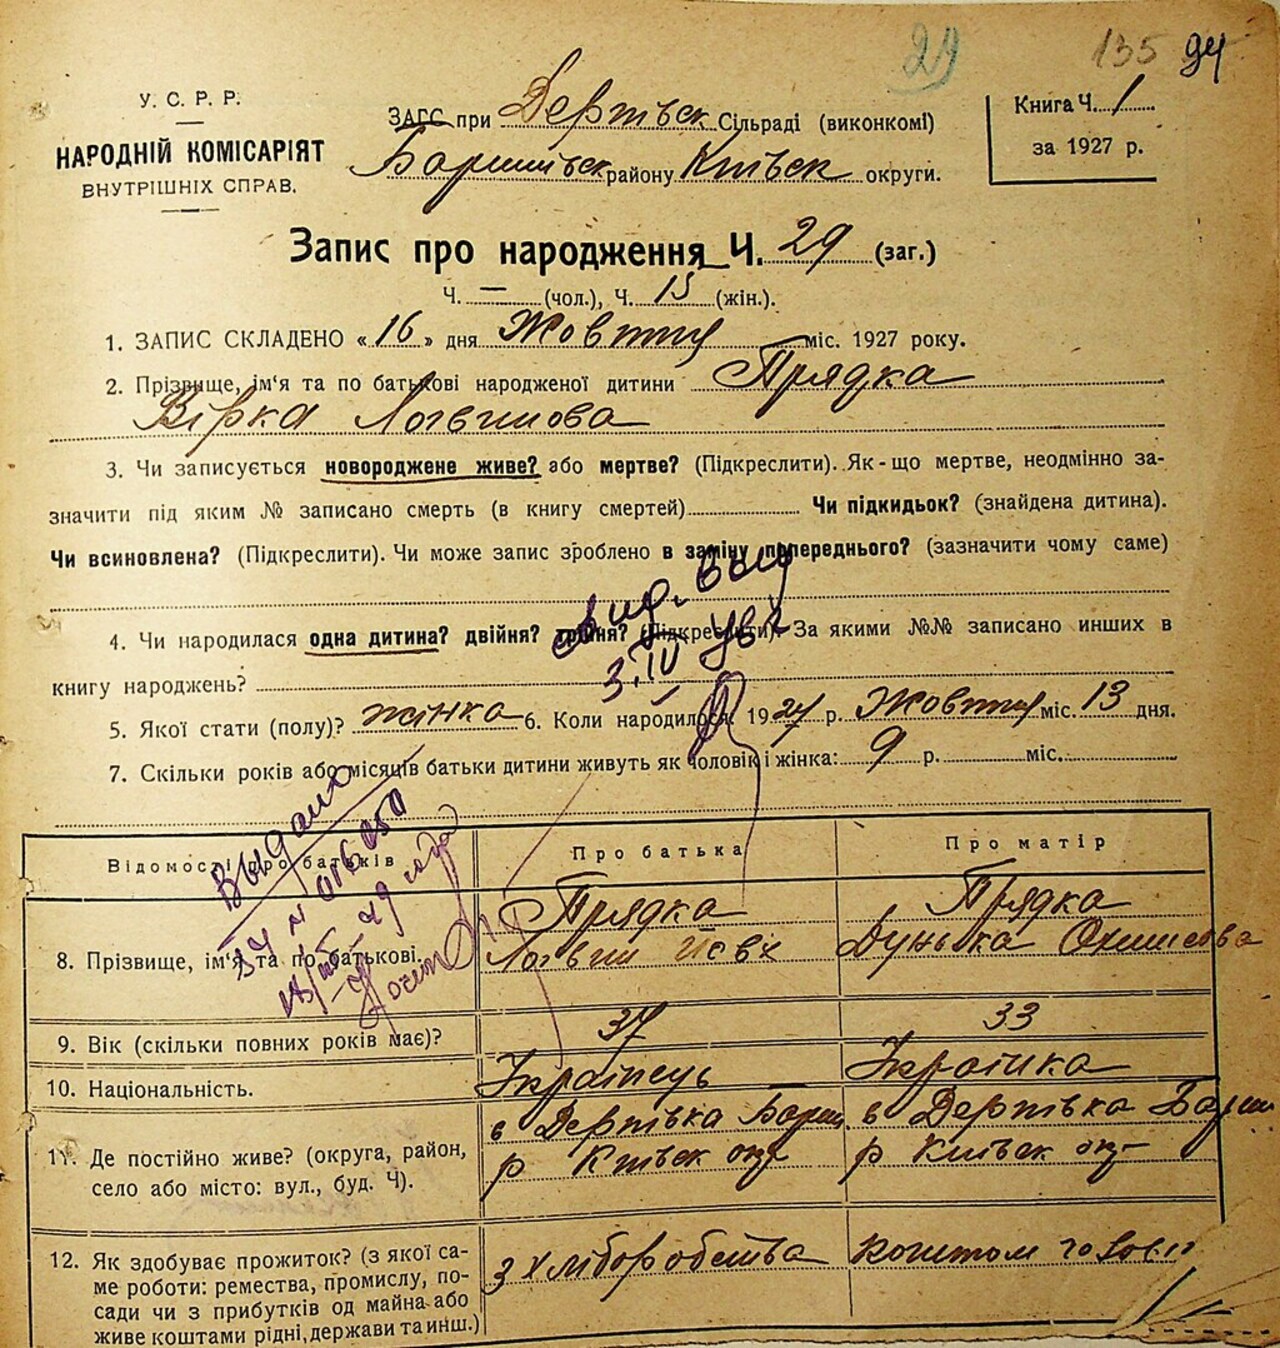 29 135 94
У. С. Р. Р.
НАРОДНІЙ КОМІСАРІЯТ
ВНУТРІШНІХ СПРАВ.
ЗАГС при Сільраді (виконкомі)
району Київськ округи.
Книга Ч. 1
за 1927 р.
Запис про народження Ч. 29 (заг.)
Ч. — (чол.), Ч. 15 (жін.).
1. ЗАПИС СКЛАДЕНО «16» дня Жовтня міс. 1927 року.
2. Прізвище, ім'я та по батькові народженої дитини Прядка
Вірка Логвинова
3. Чи записується новороджене живе? або мертве? (Підкреслити). Як-що мертве, неодмінно за-
значити під яким № записано смерть (в книгу смертей) Чи підкидьок? (знайдена дитина).
Чи всиновлена? (Підкреслити). Чи може запис зроблено в заміну попереднього? (зазначити чому саме)
4. Чи народилася одна дитина? двійня? трійня? (Підкреслити). За якими №№ записано инших в
3.IV
книгу народжень?
5. Якої стати (полу)? жінка 6. Коли народилося: 1927 р. Жовтня міс. 13 дня.
7. Скільки років або місяців батьки дитини живуть як чоловік і жінка: 9 р. міс.
Выдано
Відомості про батьків Про батька Про матір
8. Прізвище, ім'я та по батькові. Прядка Прядка
Логвин Дунька
9. Вік (скільки повних років має)? 37 33
10. Національність. Українець — Українка
11. Де постійно живе? (округа, район,
село або місто: вул., буд. Ч).
р Київськ окр р Київськ окр
12. Як здобуває прожиток? (з якої са-
ме роботи: ремества, промислу, по-
сади чи з прибутків од майна або
живе коштами рідні, держави та инш.)
з хліборобства коштом